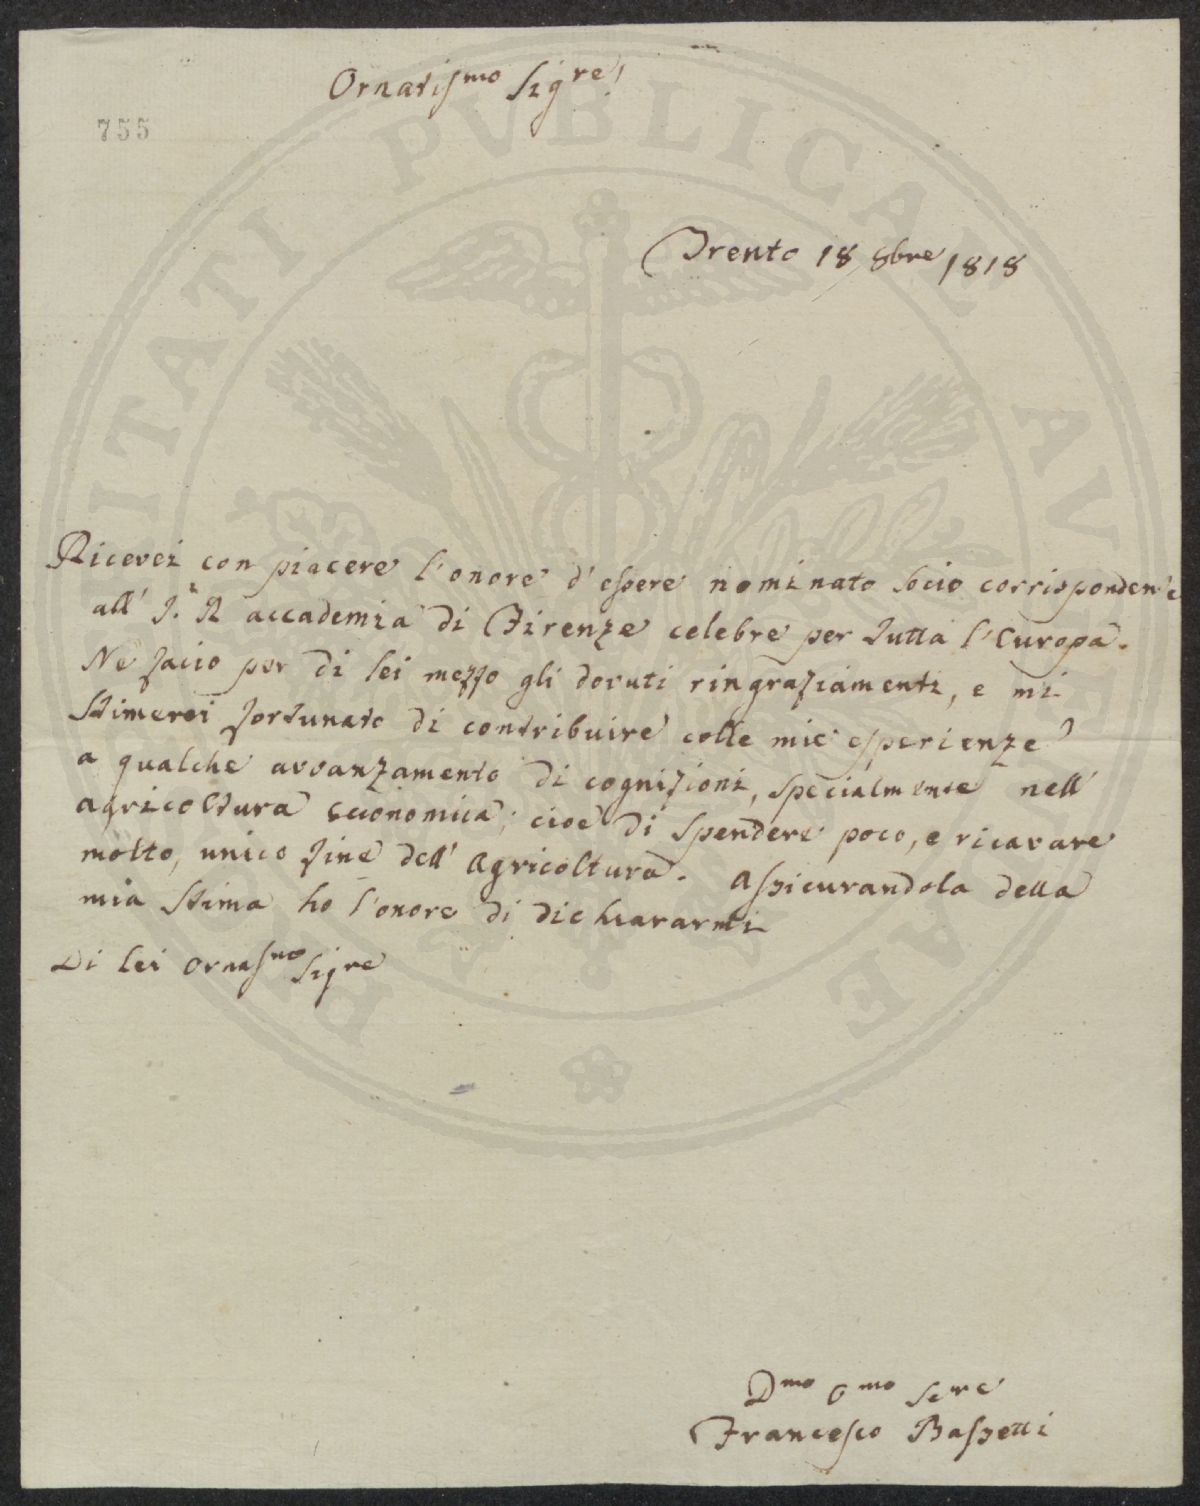 Ornatis.mo Sigre!
755
Trento 18 8bre 1818
Ricevei con piacere l'onore d'essere nominato socio corrispondente
all' I. R accademia di Firenze celebre per tutta l'Europa.
Ne facio per di lei mezzo gli dovuti ringraziamenti, e mi
stimerei fortunato di contribuire colle mie esperienze
a qualche avvanzamento di cognizioni, specialmente nell'
agricoltura economica; cioè di spendere poco, e ricavare
molto, unico fine dell' agricoltura. assicurandola della
mia stima ho l'onore di dichiararmi
Di lei Ornas.mo Sigre
Dmo Omo Sere
Francesco Bassetti
PVBLICAE